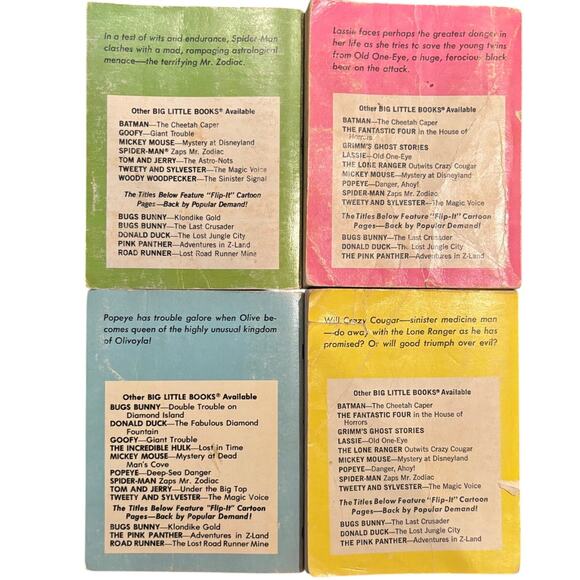 In a test of wits and endurance, Spider-Man
clashes with a mad, rampaging astrological
menace—the terrifying Mr. Zodiac.
Other BIG LITTLE BOOKS® Available
BATMAN—The Cheetah Caper
GOOFY—Giant Trouble
MICKEY MOUSE—Mystery at Disneyland
SPIDER-MAN® Zaps Mr. Zodiac
TOM AND JERRY—The Astro-Nots
TWEETY AND SYLVESTER—The Magic Voice
WOODY WOODPECKER—The Sinister Signal
The Titles Below Feature "Flip-It" Cartoon
Pages—Back by Popular Demand!
BUGS BUNNY—Klondike Gold
BUGS BUNNY—The Last Crusader
DONALD DUCK—The Lost Jungle City
PINK PANTHER—Adventures in Z-Land
ROAD RUNNER—Lost Road Runner Mine
Lassie faces perhaps the greatest danger in
her life as she tries to save the young twins
from Old One-Eye, a huge, ferocious black
bear on the attack.
Other BIG LITTLE BOOKS® Available
BATMAN—The Cheetah Caper
THE FANTASTIC FOUR in the House of
Horrors
GRIMM'S GHOST STORIES
LASSIE—Old One-Eye
THE LONE RANGER Outwits Crazy Cougar
MICKEY MOUSE—Mystery at Disneyland
POPEYE—Danger, Ahoy!
SPIDER-MAN Zaps Mr. Zodiac
TWEETY AND SYLVESTER—The Magic Voice
The Titles Below Feature "Flip-It" Cartoon
Pages—Back by Popular Demand!
BUGS BUNNY—The Last Crusader
DONALD DUCK—The Lost Jungle City
THE PINK PANTHER—Adventures in Z-Land
Popeye has trouble galore when Olive be-
comes queen of the highly unusual kingdom
of Olivoyla!
Other BIG LITTLE BOOKS® Available
BUGS BUNNY—Double Trouble on
Diamond Island
DONALD DUCK—The Fabulous Diamond
Fountain
GOOFY—Giant Trouble
THE INCREDIBLE HULK—Lost in Time
MICKEY MOUSE—Mystery at Dead
Man's Cove
POPEYE—Deep-Sea Danger
SPIDER-MAN Zaps Mr. Zodiac
TOM AND JERRY—Under the Big Top
TWEETY AND SYLVESTER—The Magic Voice
The Titles Below Feature "Flip-It" Cartoon
Pages—Back by Popular Demand!
BUGS BUNNY—Klondike Gold
THE PINK PANTHER—Adventures in Z-Land
ROAD RUNNER—The Lost Road Runner Mine
Will Crazy Cougar—sinister medicine man
—do away with the Lone Ranger as he has
promised? Or will good triumph over evil?
Other BIG LITTLE BOOKS® Available
BATMAN—The Cheetah Caper
THE FANTASTIC FOUR in the House of
Horrors
GRIMM'S GHOST STORIES
LASSIE—Old One-Eye
THE LONE RANGER Outwits Crazy Cougar
MICKEY MOUSE—Mystery at Disneyland
POPEYE—Danger, Ahoy!
SPIDER-MAN Zaps Mr. Zodiac
TWEETY AND SYLVESTER—The Magic Voice
The Titles Below Feature "Flip-It" Cartoon
Pages—Back by Popular Demand!
BUGS BUNNY—The Last Crusader
DONALD DUCK—The Lost Jungle City
THE PINK PANTHER—Adventures in Z-Land